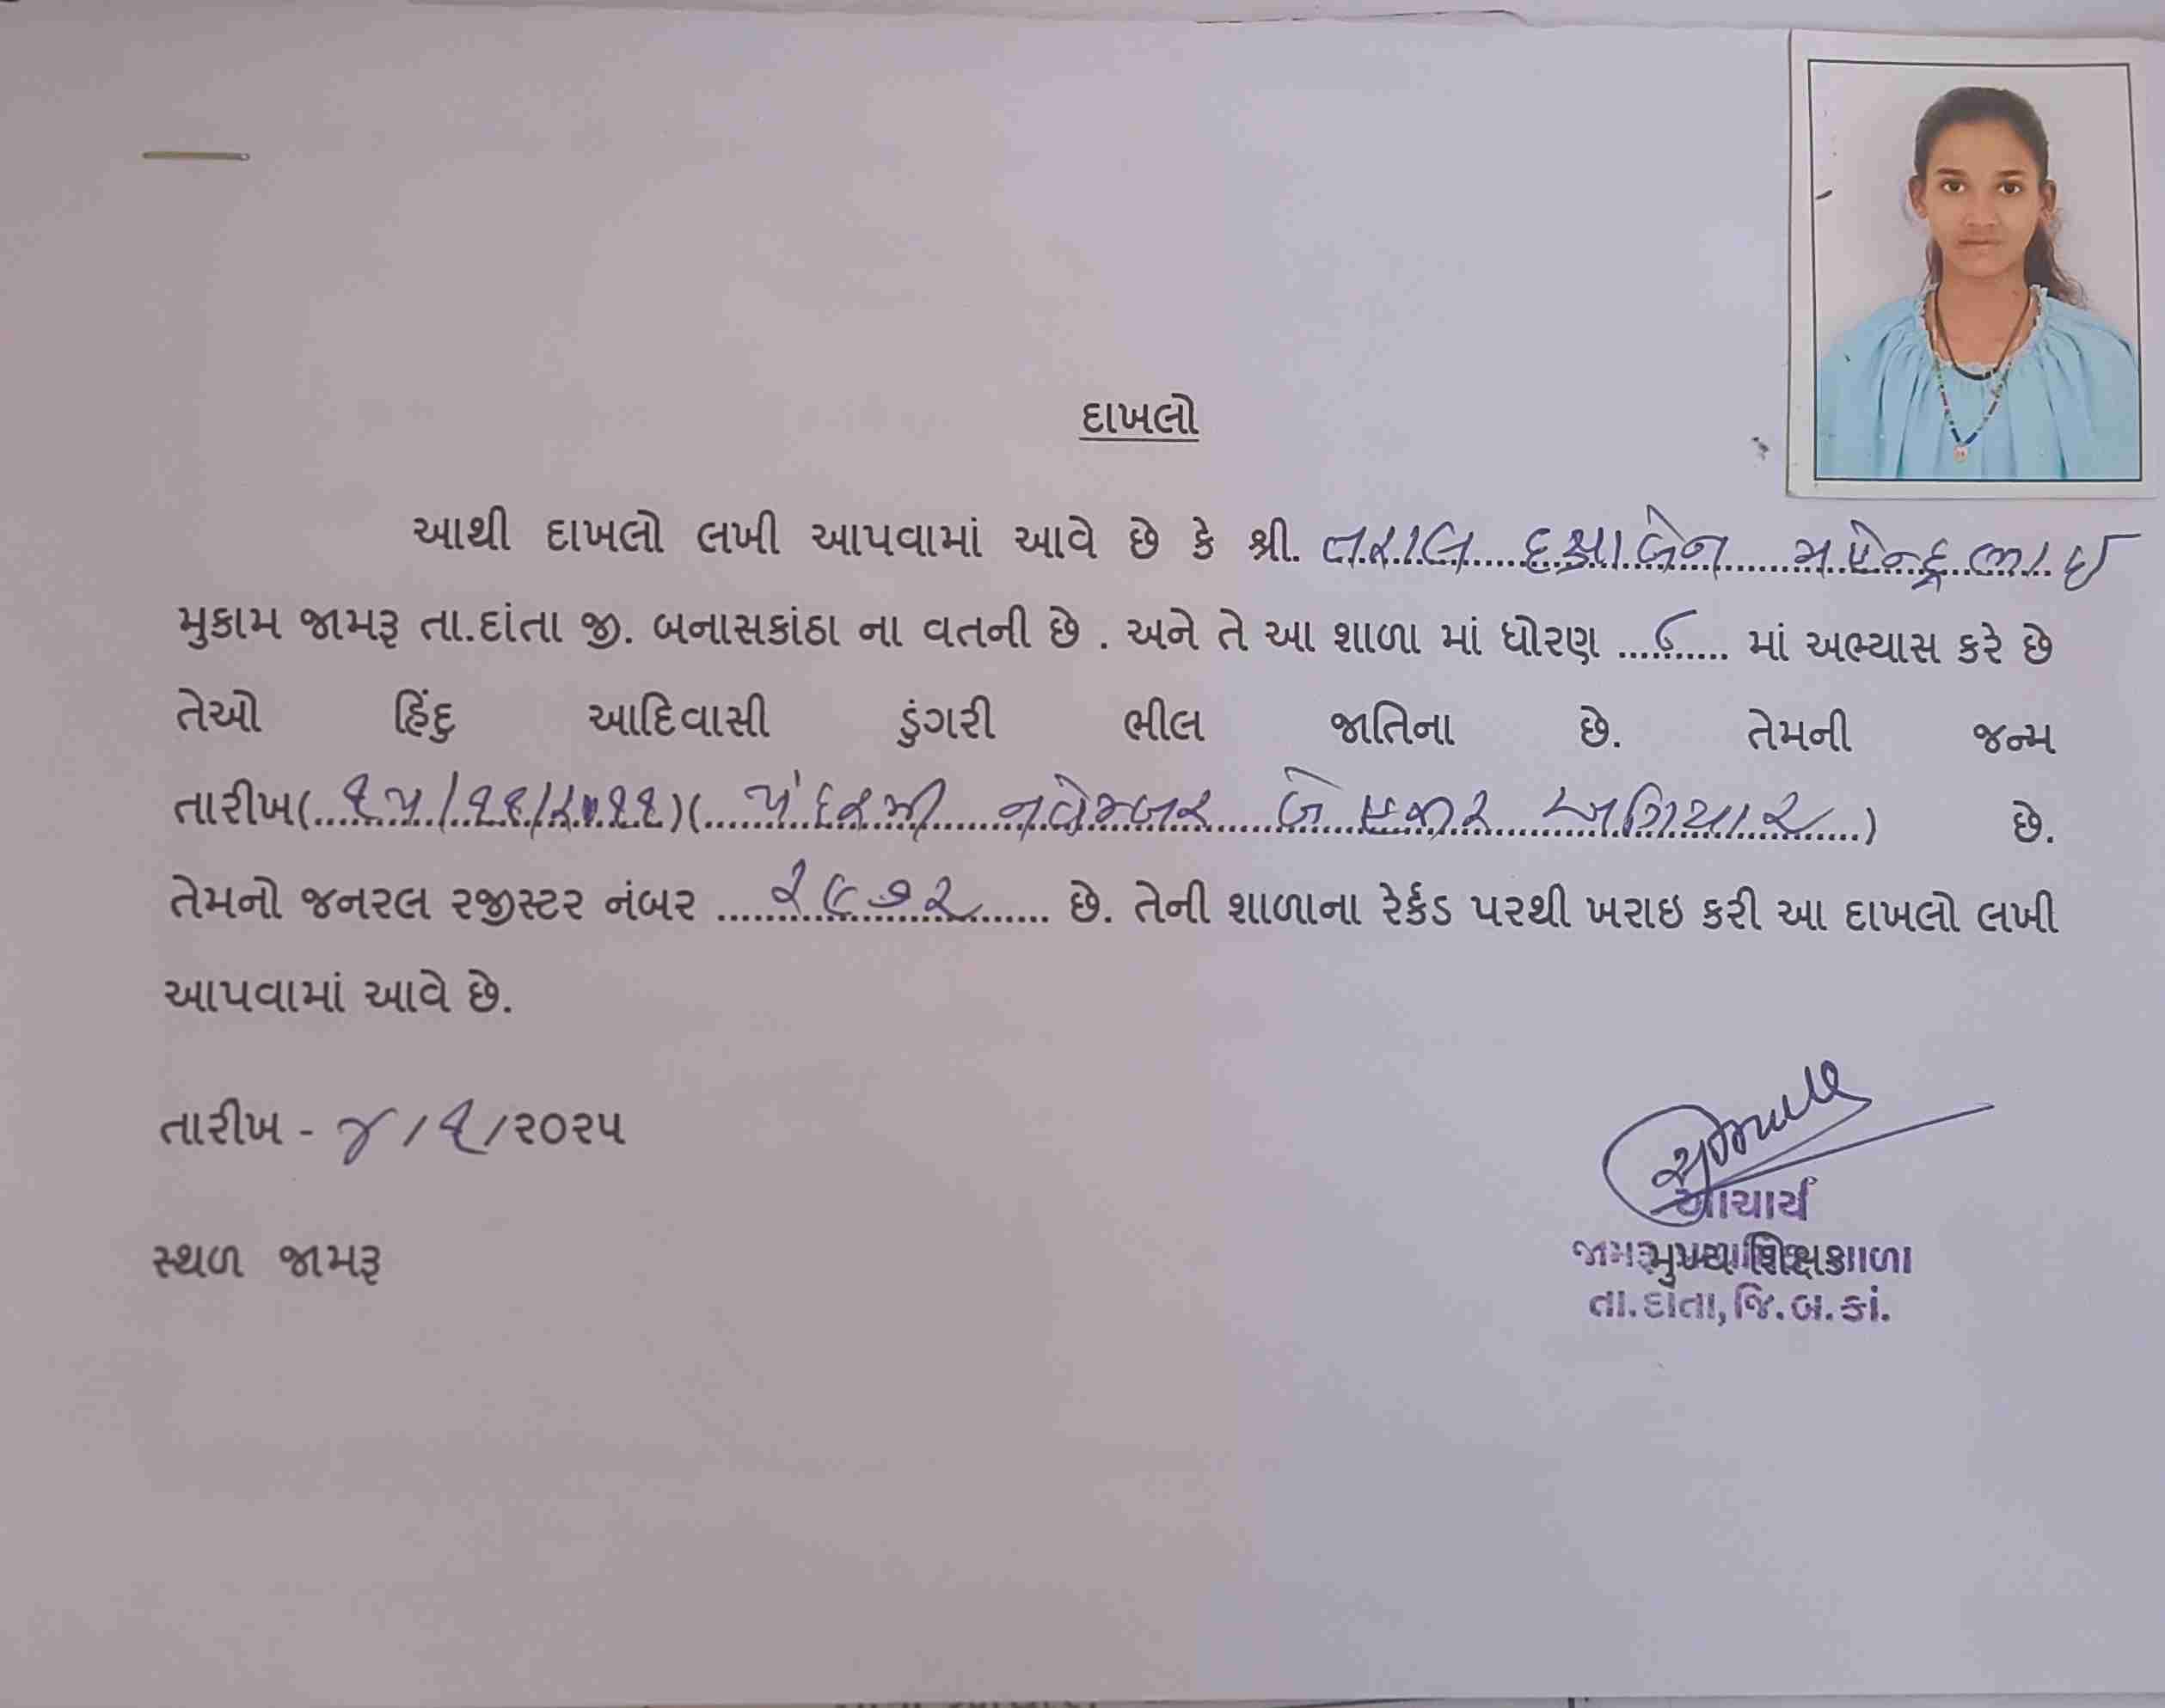 દાખલો
આથી દાખલો લખી આપવામાં આવે છે કે શ્રી. તરાલ દક્ષાબેન મહેન્દ્રભાઈ
મુકામ જામરૂ તા.દાંતા જી. બનાસકાંઠા ના વતની છે . અને તે આ શાળા માં ધોરણ ................ માં અભ્યાસ કરે છે
તેઓ હિંદુ આદિવાસી ડુંગરી ભીલ જાતિના છે. તેમની જન્મ
તારીખ(૧૫/૧૧/૨૦૧૧)(પંદરમી નવેમ્બર બે હજાર અગિયાર) છે.
તેમનો જનરલ રજીસ્ટર નંબર ૨૯૭૨ છે. તેની શાળાના રેર્કડ પરથી ખરાઇ કરી આ દાખલો લખી
આપવામાં આવે છે.
તારીખ - ૪/૧/૨૦૨૫
સ્થળ જામરૂ
આચાર્ય
તા.દાંતા, જિ.બ.કાં.